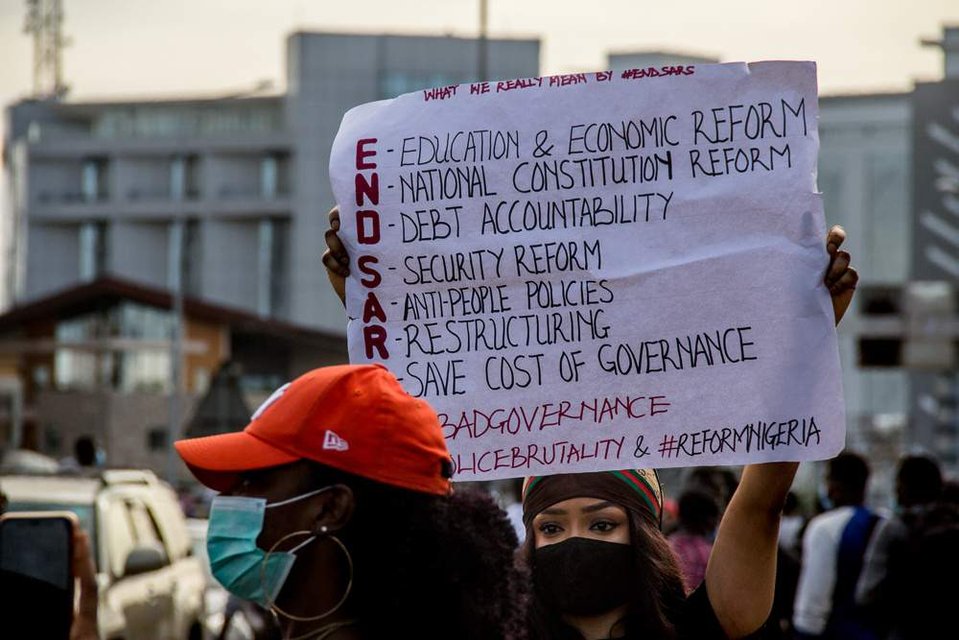 WHAT WE REALLY MEAN BY #ENDSARS
E - EDUCATION & ECONOMIC REFORM
N - NATIONAL CONSTITUTION REFORM
D - DEBT ACCOUNTABILITY
S - SECURITY REFORM
A - ANTI-PEOPLE POLICIES
R - RESTRUCTURING
- SAVE COST OF GOVERNANCE
BADGOVERNANCE
OLICEBRUTALITY & #REFORMNIGERIA